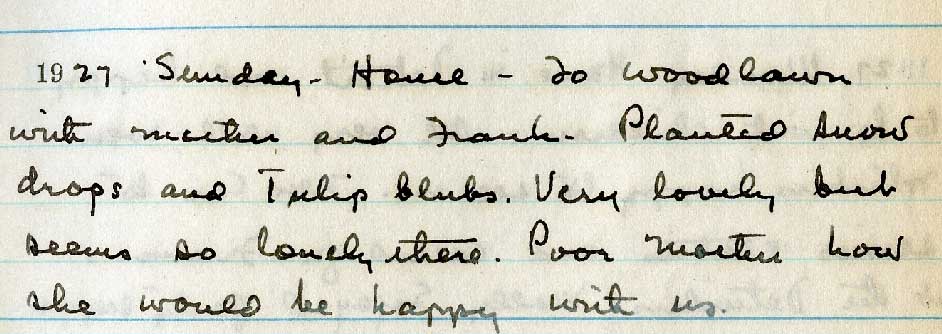 1927 Sunday - Home - To Woodlawn
with mother and Frank - Planted snow
drops and Tulip blubs. Very lovely but
seems so lonely there. Poor mother how
she would be happy with us.